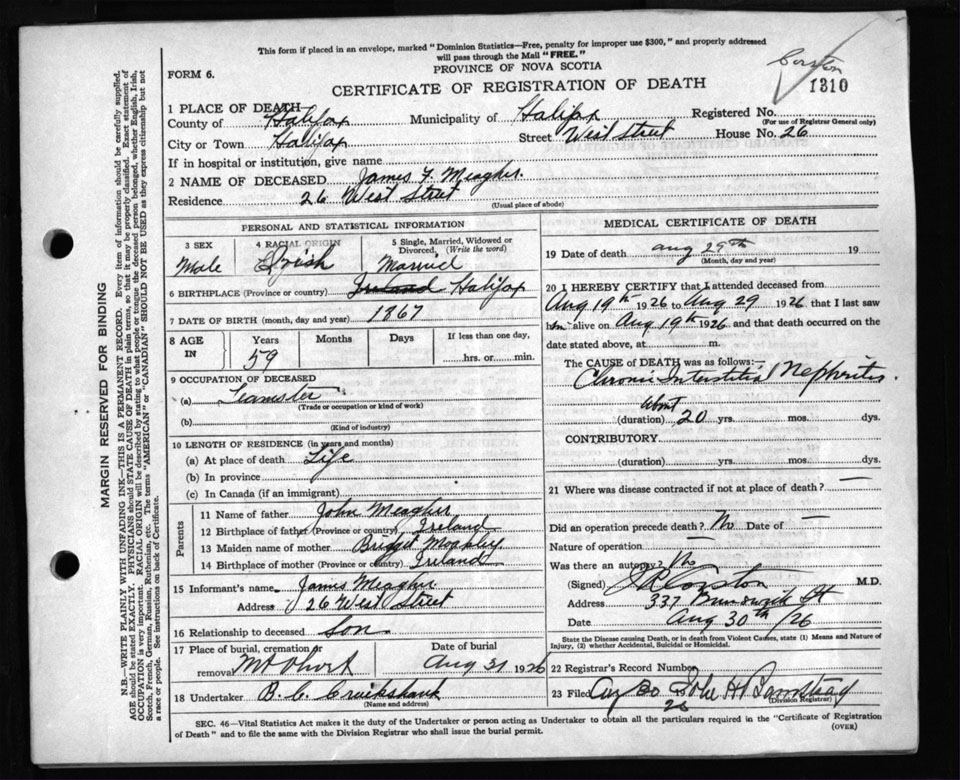 This form if placed in an envelope, marked "Dominion Statistics—Free, penalty for improper use $300," and properly addressed
will pass through the Mail "FREE."
PROVINCE OF NOVA SCOTIA
FORM 6.
CERTIFICATE OF REGISTRATION OF DEATH
Corston
1310
1 PLACE OF DEATH
County of Halifax Municipality of Halifax Registered No.
(For use of Registrar General only)
City or Town Halifax Street West street House No. 26
If in hospital or institution, give name
2 NAME OF DECEASED James F. Meagher.
Residence 26 West Street
(Usual place of abode)
PERSONAL AND STATISTICAL INFORMATION
3 SEX
Male
4 RACIAL ORIGIN
Irish
5 Single, Married, Widowed or
Divorced, (Write the word)
Married
6 BIRTHPLACE (Province or country) Ireland Halifax
7 DATE OF BIRTH (month, day and year) 1867
8 AGE
IN
Years
59
Months
Days
If less than one day,
hrs. or min.
9 OCCUPATION OF DECEASED
(a) Teamster
(Trade or occupation or kind of work)
(b)
(Kind of industry)
10 LENGTH OF RESIDENCE (in years and months)
(a) At place of death Life
(b) In province
(c) In Canada (if an immigrant)
Parents
11 Name of father John Meagher
12 Birthplace of father (Province or country) Ireland
13 Maiden name of mother Bridget Moakley
14 Birthplace of mother (Province or country) Ireland
15 Informant's name James Meagher
Address 26 West Street
16 Relationship to deceased Son
17 Place of burial, cremation or
removal Mt Olivet
Date of burial
Aug 31 1926
18 Undertaker B. C. Cruikshank
(Name and address)
MEDICAL CERTIFICATE OF DEATH
19 Date of death Aug 29th 19
(Month, day and year)
20 I HEREBY CERTIFY that I attended deceased from
Aug 19th 1926 to Aug 29 1926 that I last saw
him alive on Aug 19th 1926 and that death occurred on the
date stated above, at m.
The CAUSE of DEATH was as follows:—
Chronic Interstitial Nephritis
(duration) About 20 yrs. mos. dys.
CONTRIBUTORY
(duration) yrs. mos. dys.
21 Where was disease contracted if not at place of death? —
Did an operation precede death? No Date of —
Nature of operation —
Was there an autopsy? No
(Signed) Corston M.D.
Address 337 Brunswick St
Date Aug 30th /26
State the Disease causing Death, or in death from Violent Causes, state (1) Means and Nature of
Injury, (2) whether Accidental, Suicidal or Homicidal.
22 Registrar's Record Number
23 Filed Aug 30 26 John H Barnstead
(Division Registrar)
SEC. 46—Vital Statistics Act makes it the duty of the Undertaker or person acting as Undertaker to obtain all the particulars required in the "Certificate of Registration
of Death" and to file the same with the Division Registrar who shall issue the burial permit.
(OVER)
MARGIN RESERVED FOR BINDING
N.B.—WRITE PLAINLY WITH UNFADING INK—THIS IS A PERMANENT RECORD. Every item of information should be carefully supplied.
AGE should be stated EXACTLY. PHYSICIANS should STATE CAUSE OF DEATH in plain terms, so that it may be properly classified. Exact statement of
OCCUPATION is very important. RACIAL ORIGIN will be described by stating to what people or tongue the deceased person belonged, whether English, Irish,
Scotch, French, German, Russian, Ruthenian, etc. The terms "AMERICAN" or "CANADIAN" SHOULD NOT BE USED as they express citizenship but not
a race or people. See instructions on back of Certificate.